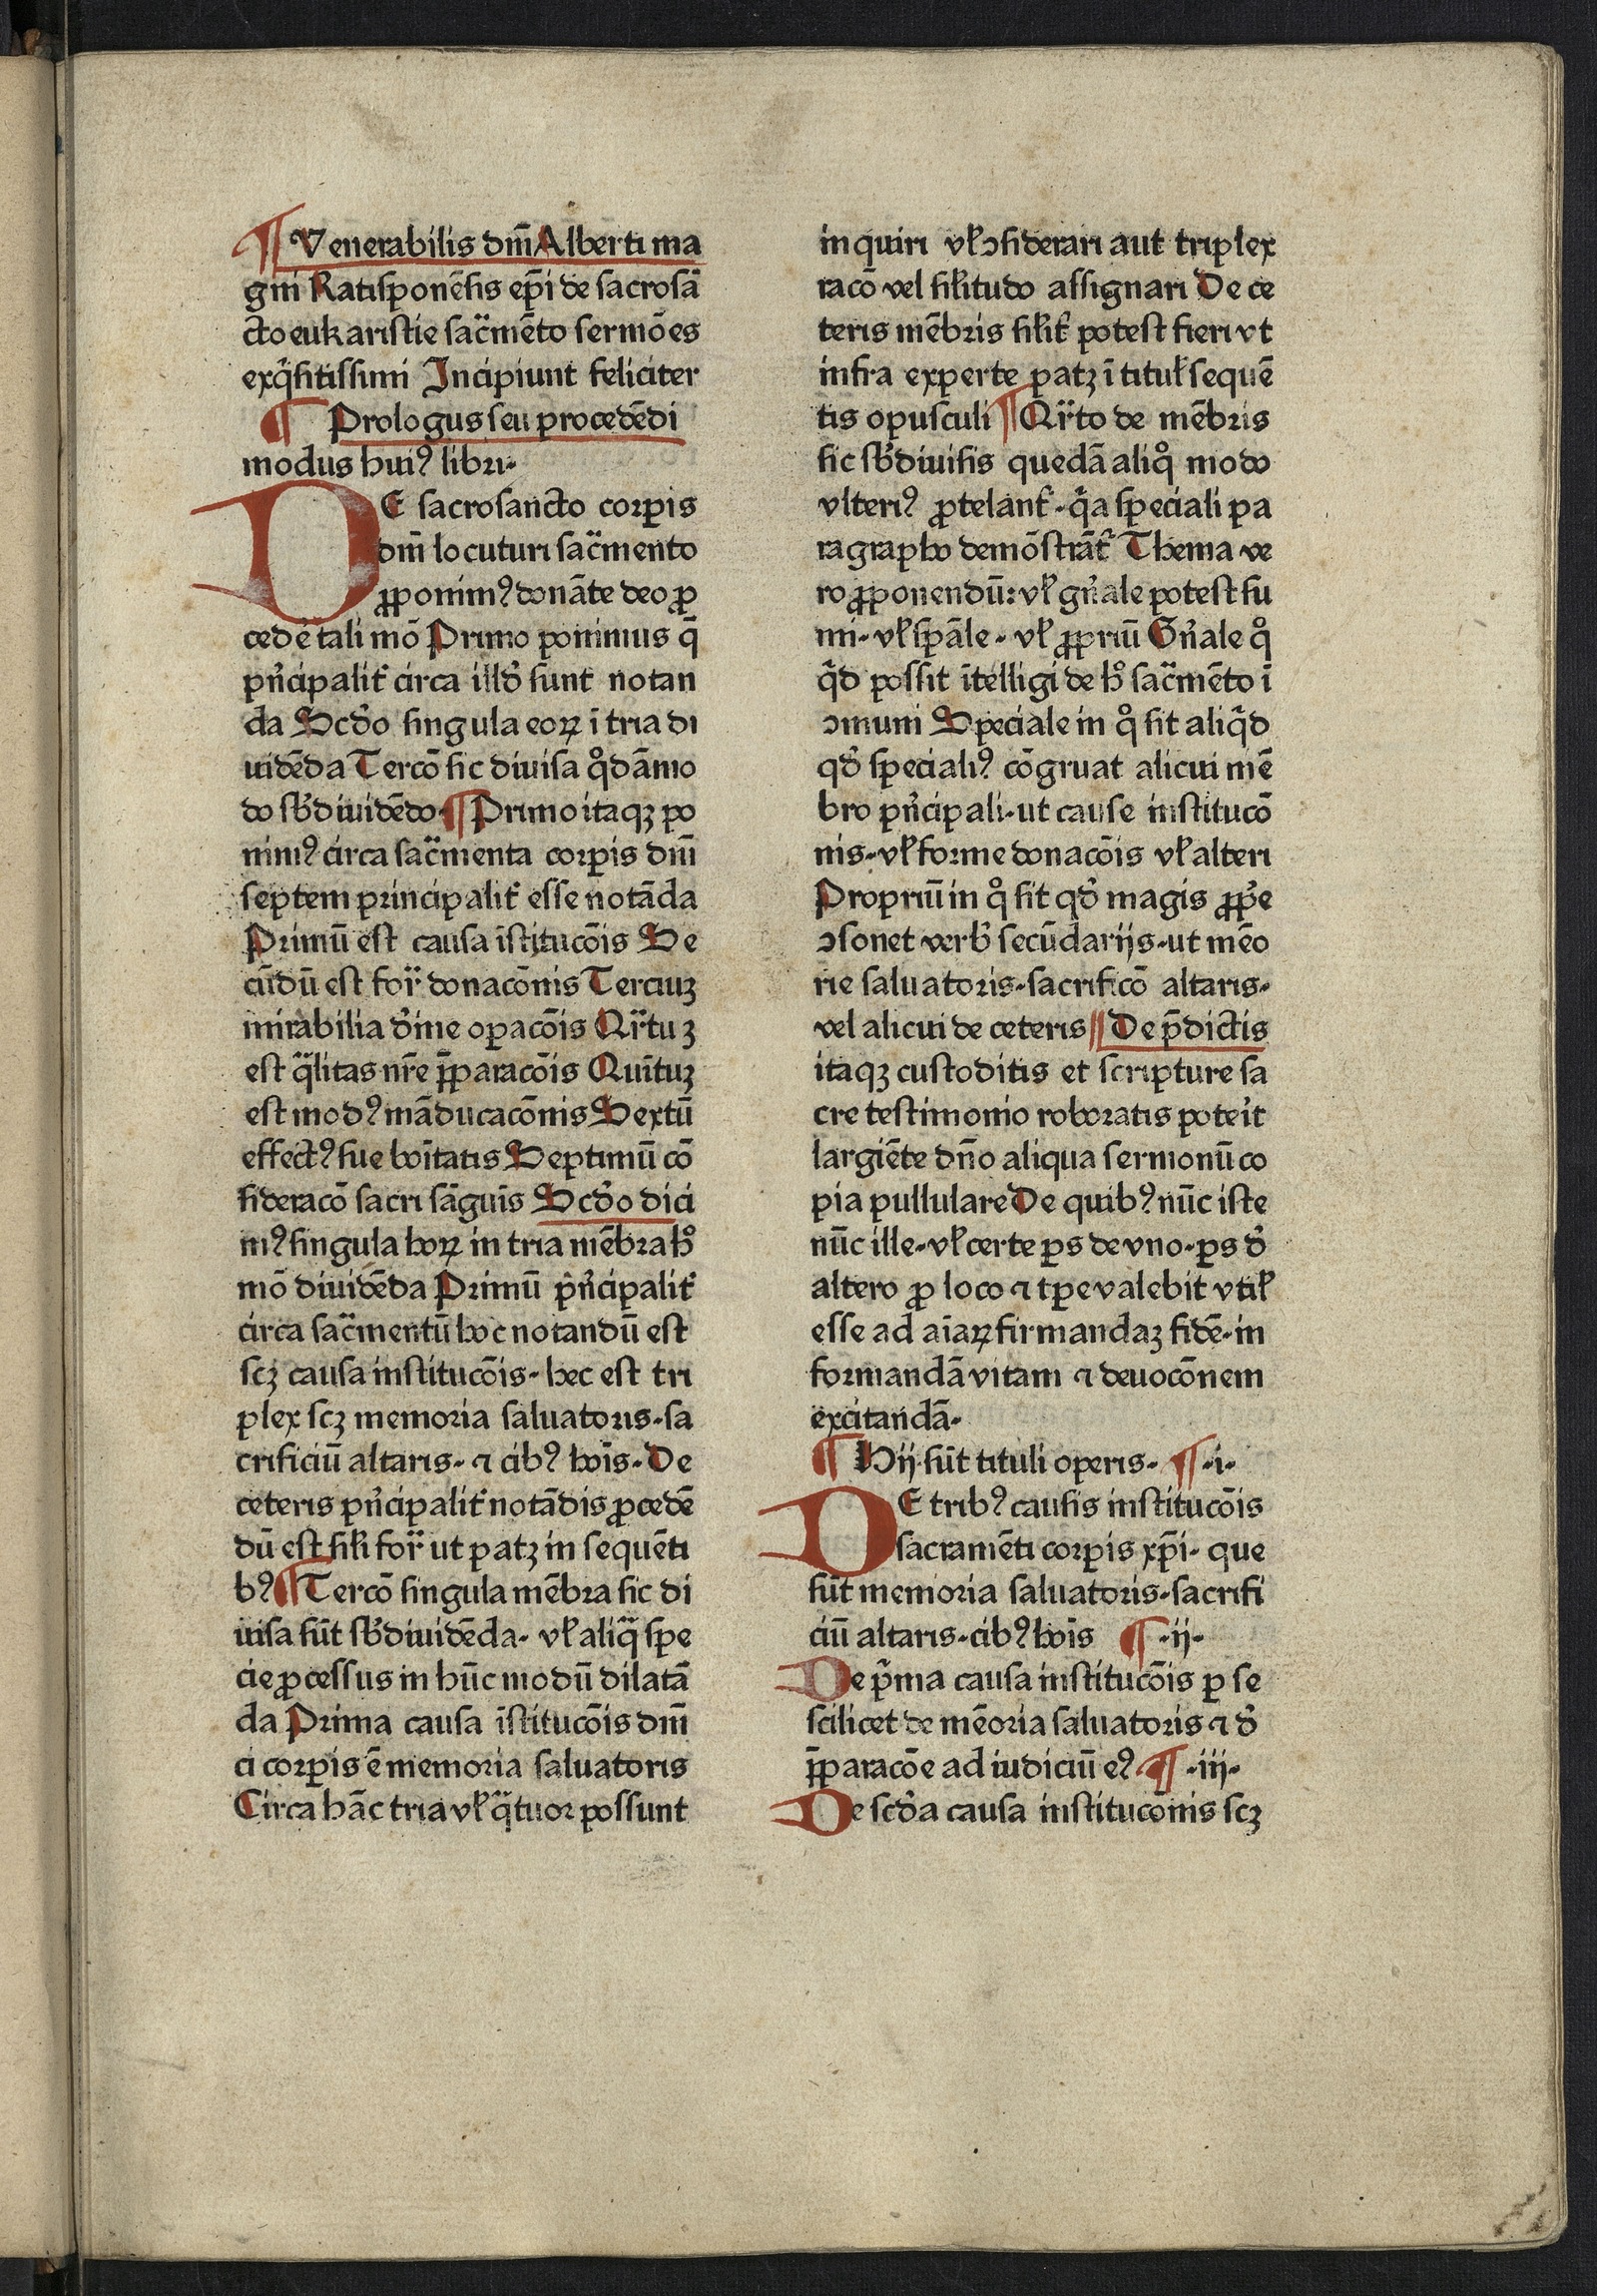 ¶ Venerabilis dn̄i Alberti ma
gni Ratisponēsis ep̄i de sacrosā
cto eukaristie sac̄mēto sermōes
exq̄sitissimi Incipiunt feliciter
¶ Prologus seu procedēdi
modus huiꝰ libri.
DE sacrosancto corꝑis
dn̄i locuturi sac̄mento
ꝓponimꝰ donāte deo ꝓ
cedē tali mō Primo ponimus q̄
pn̄cipalit̄ circa illd̄ sunt notan
da Scd̄o singula eoꝝ ī tria di
uidēda Tercō sic diuisa q̊dāmo
do sb̄diuidēdo. ¶ Primo itaqꝫ po
nimꝰ circa sac̄menta corꝑis dn̄i
septem principalit̄ esse notāda
Primū est causa īstitucōis Se
cūdū est for̄ donacōnis Terciuꝫ
mirabilia d̄ine oꝑacōis Qr̄tuꝫ
est q̄litas nr̄e p̄ꝑaracōis Quītuꝫ
est modꝰ māducacōnis Sextū
effectꝰ sue boītatis Septimū cō
sideracō sacri sāguīs Scd̄o dici
mꝰ singula hoꝝ in tria mēbra h̊
mō diuidēda Primū pn̄cipalit̄
circa sac̄mentū hoc notandū est
scꝫ causa institucōis. hec est tri
plex scꝫ memoria saluatoris. sa
crificiū altaris. ⁊ cibꝰ hoīs. De
ceteris pn̄cipalit̄ notādis ꝓcedē
dū est sil̄i for̄ ut patꝫ in sequēti
bꝰ ¶ Tercō singula mēbra sic di
uisa sūt sb̄diuidēda. vl̄ aliq̄ spe
cie ꝓcessus in hūc modū dilatā
da Prima causa īstitucōis dn̄i
ci corꝑis ē memoria saluatoris
Circa hāc tria vl̄ q̄tuor possunt
inquiri vl̄ ꝯsiderari aut triplex
racō vel sil̄itudo assignari De ce
teris mēbris sil̄it̄ potest fieri vt
infra experte patꝫ ī titul̄ sequē
tis opusculi ¶ Qr̄to de mēbris
sic sb̄diuisis quedā aliq̊ modo
vlteriꝰ ꝓtelant̄. q̄a speciali pa
ragrapho demōstrāt̄ Thema ve
ro ꝓponendū: vl̄ gn̄ale potest su
mi. vl̄ sp̄ale. vl̄ ꝓpriū Gn̄ale q̊
q̄d possit ītelligi de h̊ sac̄mēto ī
ꝯmuni Speciale in q̊ sit aliq̄d
qd̄ specialiꝰ cōgruat alicui mē
bro pn̄cipali. ut cause institucō
nis. vl̄ forme donacōis vl̄ alteri
Propriū in q̊ sit qd̄ magis ꝓp̄e
ꝯsonet verb̄ secūdarijs. ut mēo
rie saluatoris. sacrificō altaris.
vel alicui de ceteris ¶ De p̄dictis
itaqꝫ custoditis et scripture sa
cre testimonio roboratis poteīt
largiēte dn̄o aliqua sermonū co
pia pullulare De quibꝰ nūc iste
nūc ille. vl̄ certe ꝑs de vno. ꝑs d̄
altero ꝓ loco ⁊ tꝑe valebit vtil̄
esse ad aīaꝝ firmandaꝫ fidē. in
formandā vitam ⁊ deuocōnem
excitandā.
¶ Hij sūt tituli operis. ¶ .i.
DE tribꝰ causis institucōis
sacramēti corꝑis xp̄i. que
sūt memoria saluatoris. sacrifi
ciū altaris. cibꝰ hoīs ¶ .ij.
De p̄ma causa institucōis ꝑ se
scilicet de mēoria saluatoris ⁊ d̄
p̄ꝑaracōe ad iudiciū eꝰ ¶ .iij.
De scd̄a causa institucōnis scꝫ